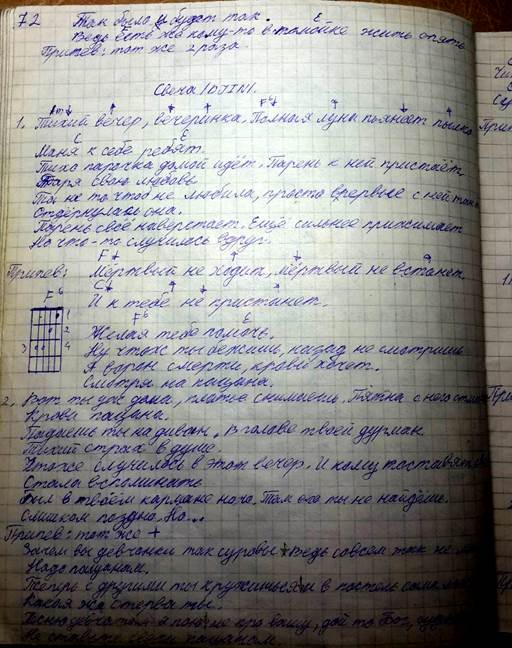 72 Так было и будет так. E
Ведь есть же кому-то в помойке жить опять
Припев: тот же 2 раза.
Свеча /DJIN/.
Am
1. Тихий вечер, вечеринка. Полная луна пьянеет
C E
Маня к себе ребят.
Тихо парочка домой идёт. Парень к ней пристаёт
Даря свою любовь
Ты не то чтоб не любила, просто впервые с ней
Отдёрнулась она.
Парень своё наверстает. Ещё сильнее прижимает
Но что-то случилось вдруг.
F
Припев: Мёртвый не ходит, мёртвый не встанет
C
И к тебе не пристанет.
F6 F6 E
1
2
3 4
Желая тебе помочь.
Ну что ж ты бежишь, назад не смотришь
А ворон смерти, крови хочет.
Смотря на пацана.
2. Вот ты уж дома, платье снимаешь. Пятна с него
Крови пацана.
Падаешь ты на диван. В голове твоей дурман
Тихий страх в душе.
Что же случилось в этот вечер. И кому поставят
Стала вспоминать
Был в твоём кармане нож. Там его ты не найдёшь.
Слишком поздно. Но...
Припев: тот же +
Зачем вы девчонки так суровы. Ведь совсем так не
Надо пацанам.
Теперь с другими ты кружишься и в постель сама
Какая же стерва ты.
я пою не про вашу, дай то Бог,
Не ставьте свечи пацанам.